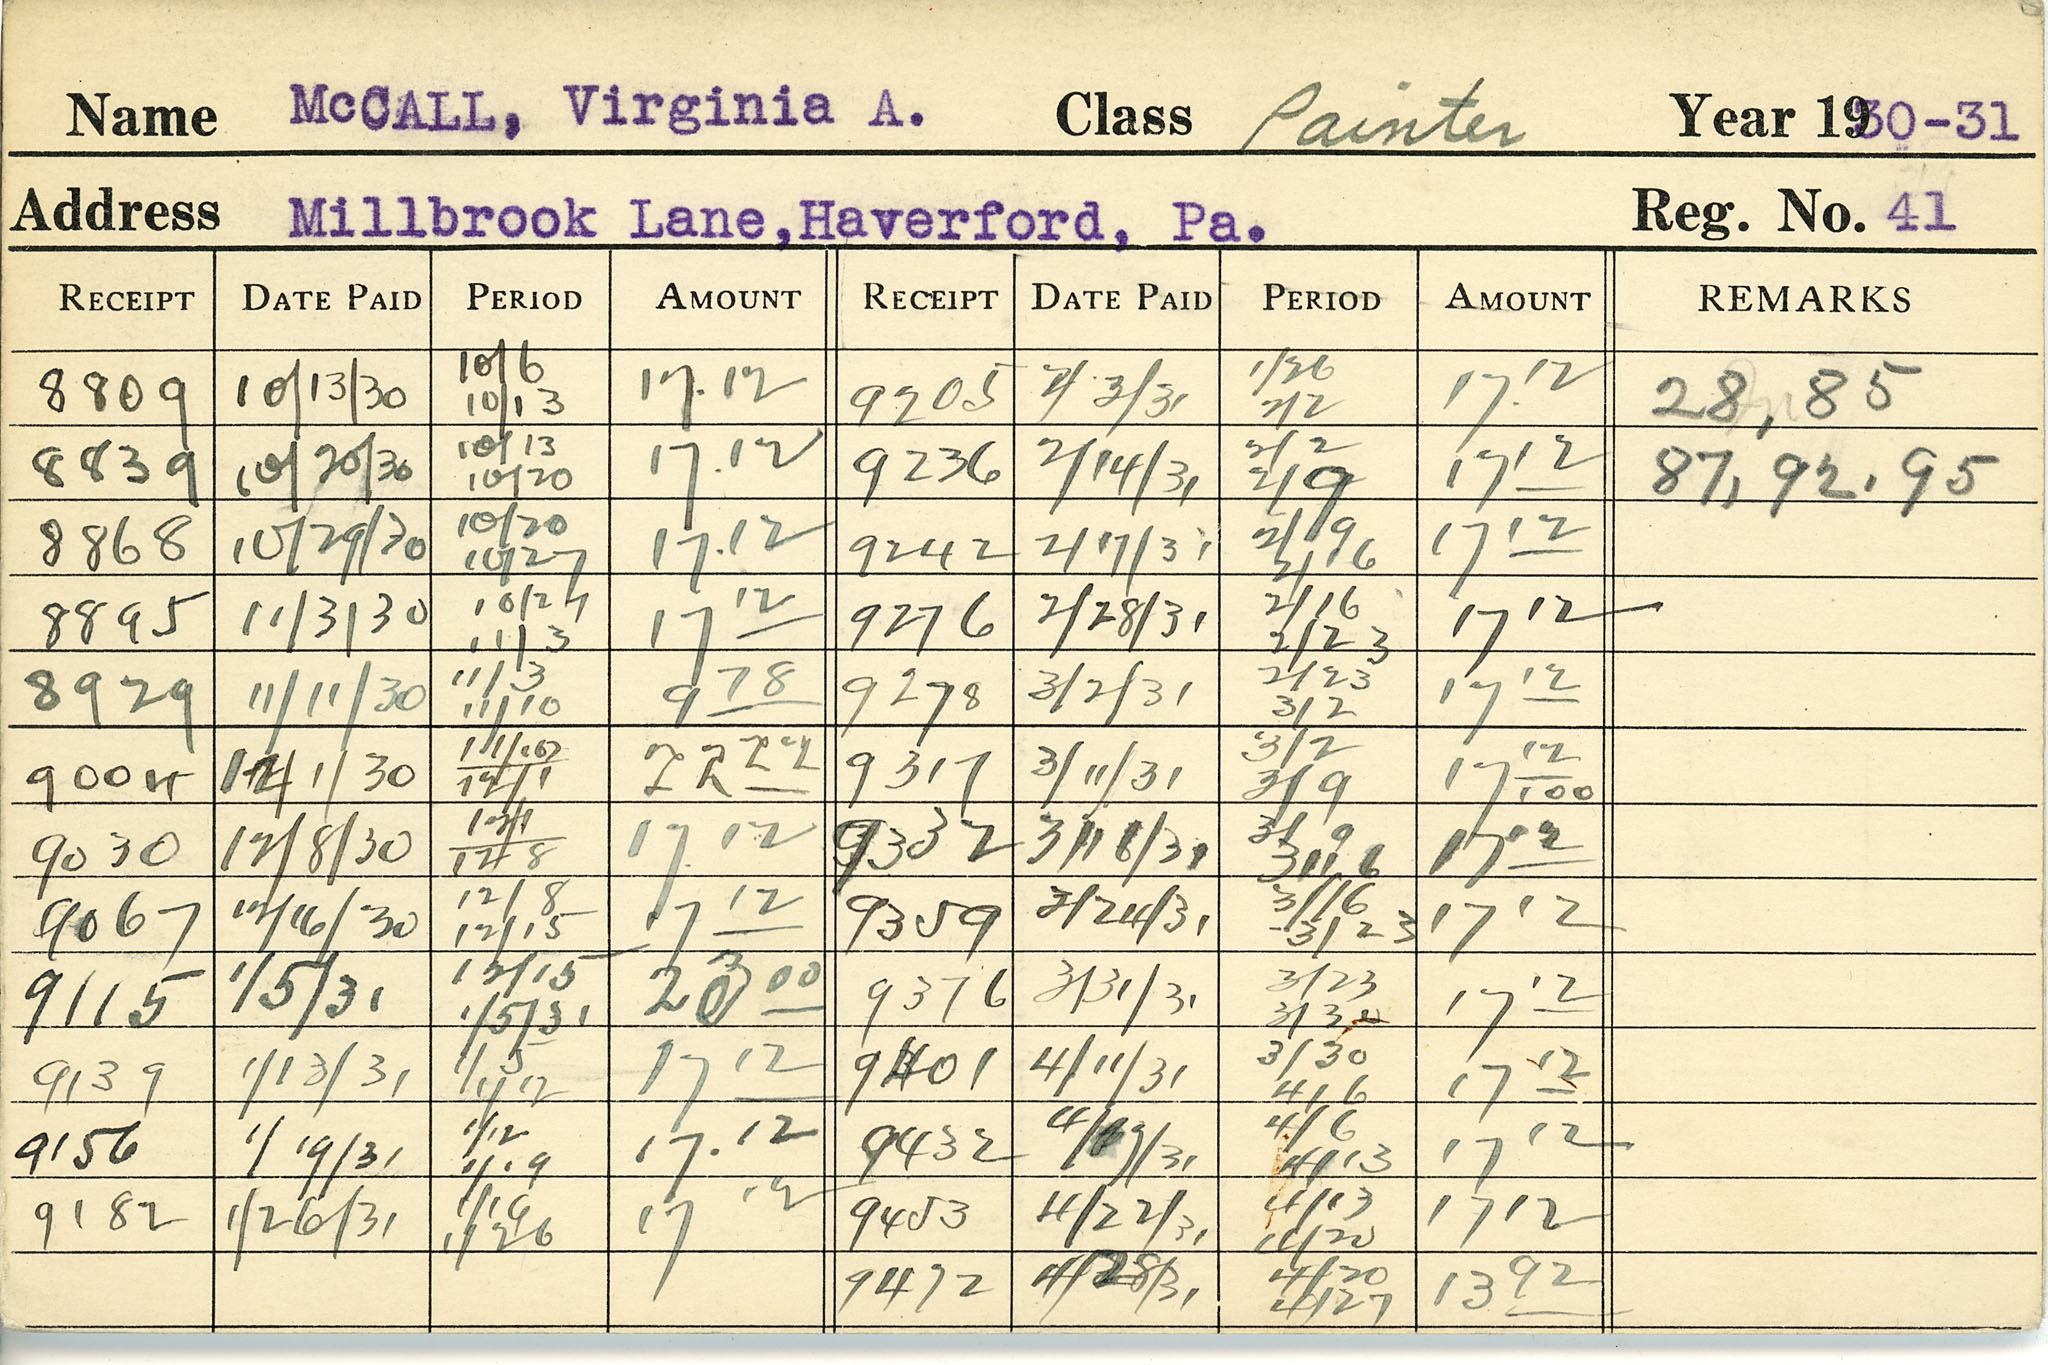 Name McCALL, Virginia A. Class Painter Year 1930-31
Address Millbrook Lane, Haverford, Pa. Reg. No. 41
RECEIPT DATE PAID PERIOD AMOUNT RECEIPT DATE PAID PERIOD AMOUNT REMARKS
8809 10/13/30 10/6 10/13 17.12 9205 2/3/31 1/26 2/2 17.12 28, 85
8839 10/20/30 10/13 10/20 17.12 9236 2/14/31 2/2 2/9 17 12 87, 92, 95
8868 10/29/30 10/20 10/27 17.12 9242 2/17/31 2/9 2/16 17 12
8895 11/3/30 10/27 11/3 17 12 9276 2/28/31 2/16 2/23 17 12
8929 11/11/30 11/3 11/10 9 78 9278 3/2/31 2/23 3/2 17 12
9004 12/1/30 12/1 9317 3/11/31 3/2 3/9 17 12/100
9030 12/8/30 12/1 12/8 17.12 9332 3/18/31 3/9 3/16 17 12
9067 12/16/30 12/8 12/15 17 12 9359 3/24/31 3/16 3/23 17 12
9115 1/5/31 12/15 1/5/31 9376 3/31/31 3/23 3/30 17 12
9139 1/13/31 1/5 1/12 17 12 9401 4/11/31 3/30 4/6 17 12
9156 1/19/31 1/12 1/19 17.12 9432 4/6 4/13 17 12
9182 1/26/31 1/19 1/26 17 12 9453 4/22/31 4/13 4/20 17 12
9472 4/28/31 4/20 4/27 13 92